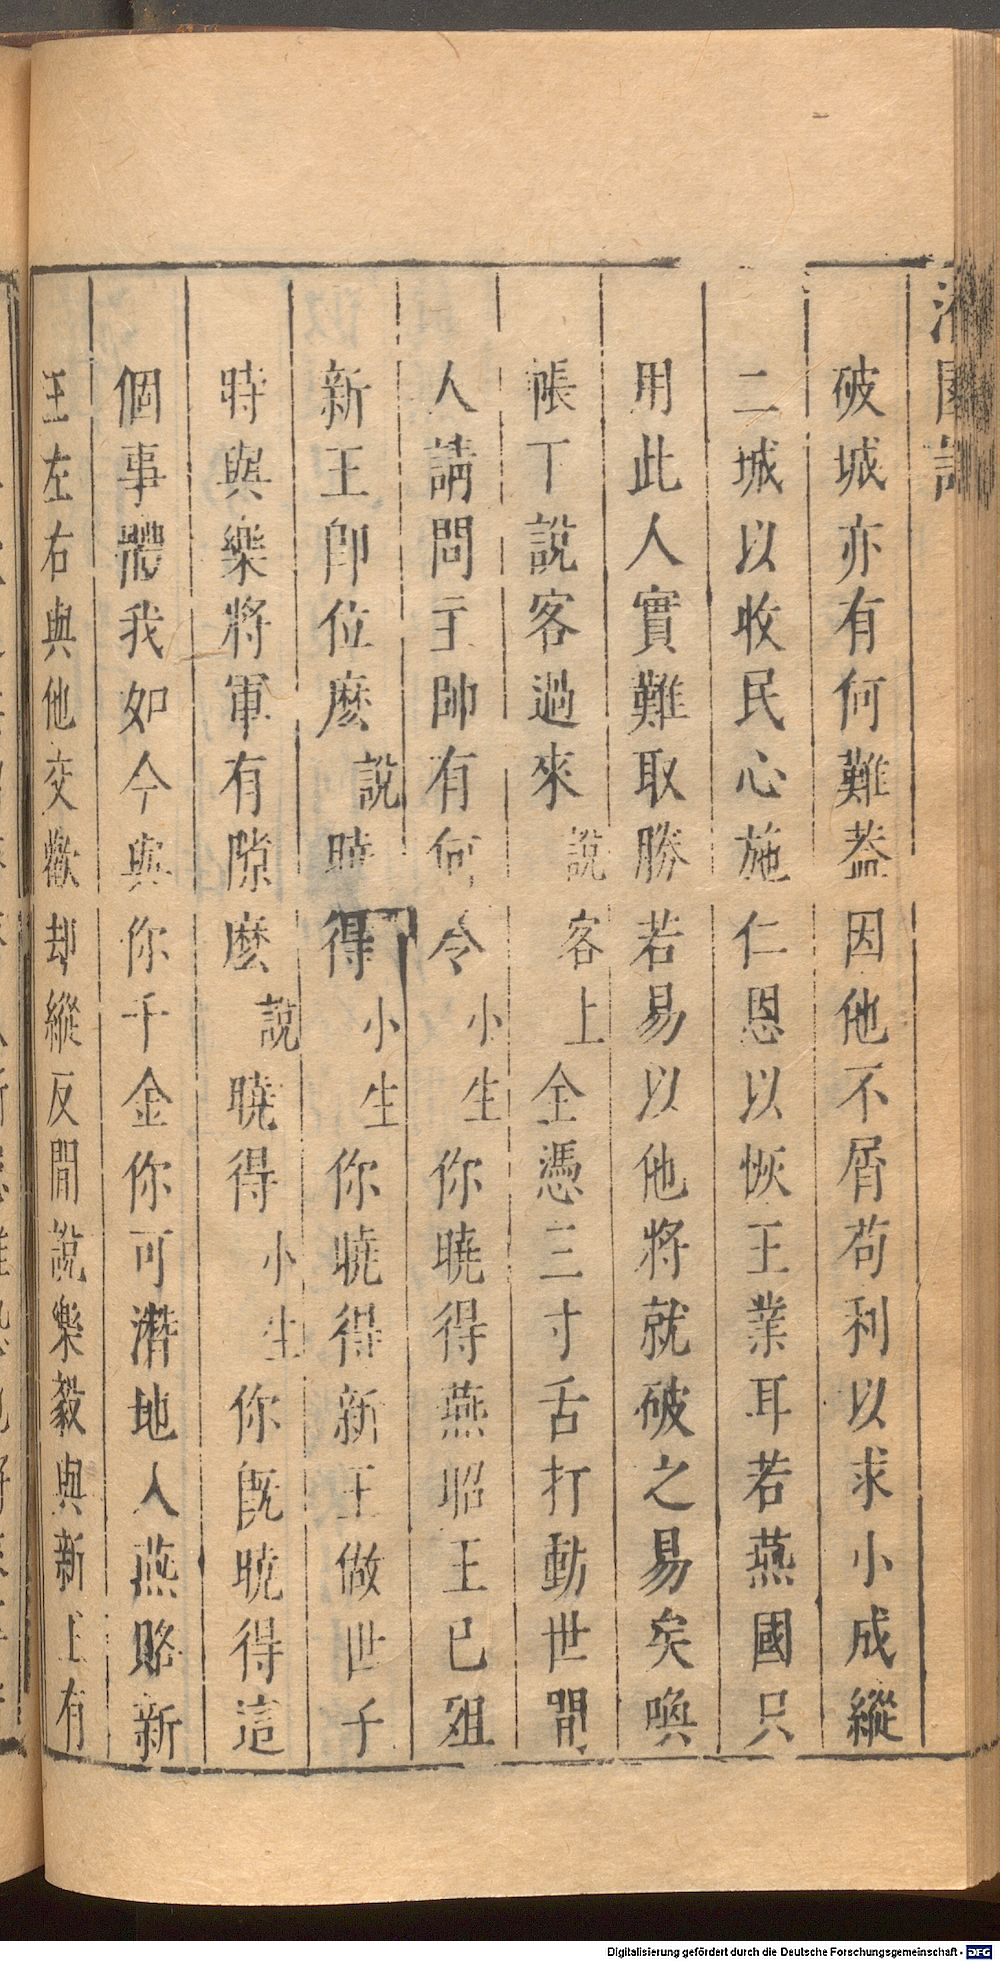 破城亦有何難蓋因他不屑苟利以求小成縱
二城以收民心施仁恩以恢王業耳若燕國只
用此人實難取勝若易以他將就破之易矣喚
帳丁說客過來說客上全憑三寸舌打動世間
人請問主帥有何令小生你曉得燕昭王已殂
新王卽位麽說曉得小生你曉得新王做世子
時與樂將軍有隙麽說曉得小生你旣曉得這
個事體我如今與你千金你可潛地人燕賂新
王左右與他交歡却縱反間說樂毅與新王有
Digitalisierung gefördert durch die Deutsche Forschungsgemeinschaft - DFG